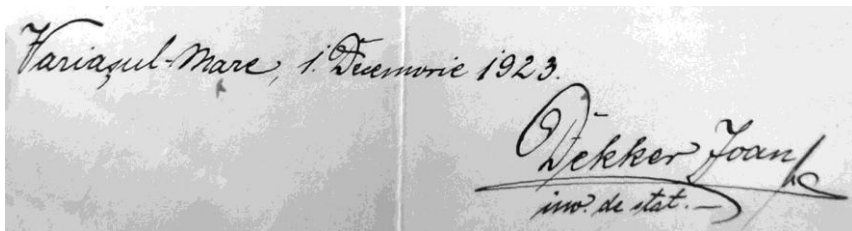 Variașul-Mare, 1. Decemvrie 1923.
Dekker Ioan
înv. de stat.